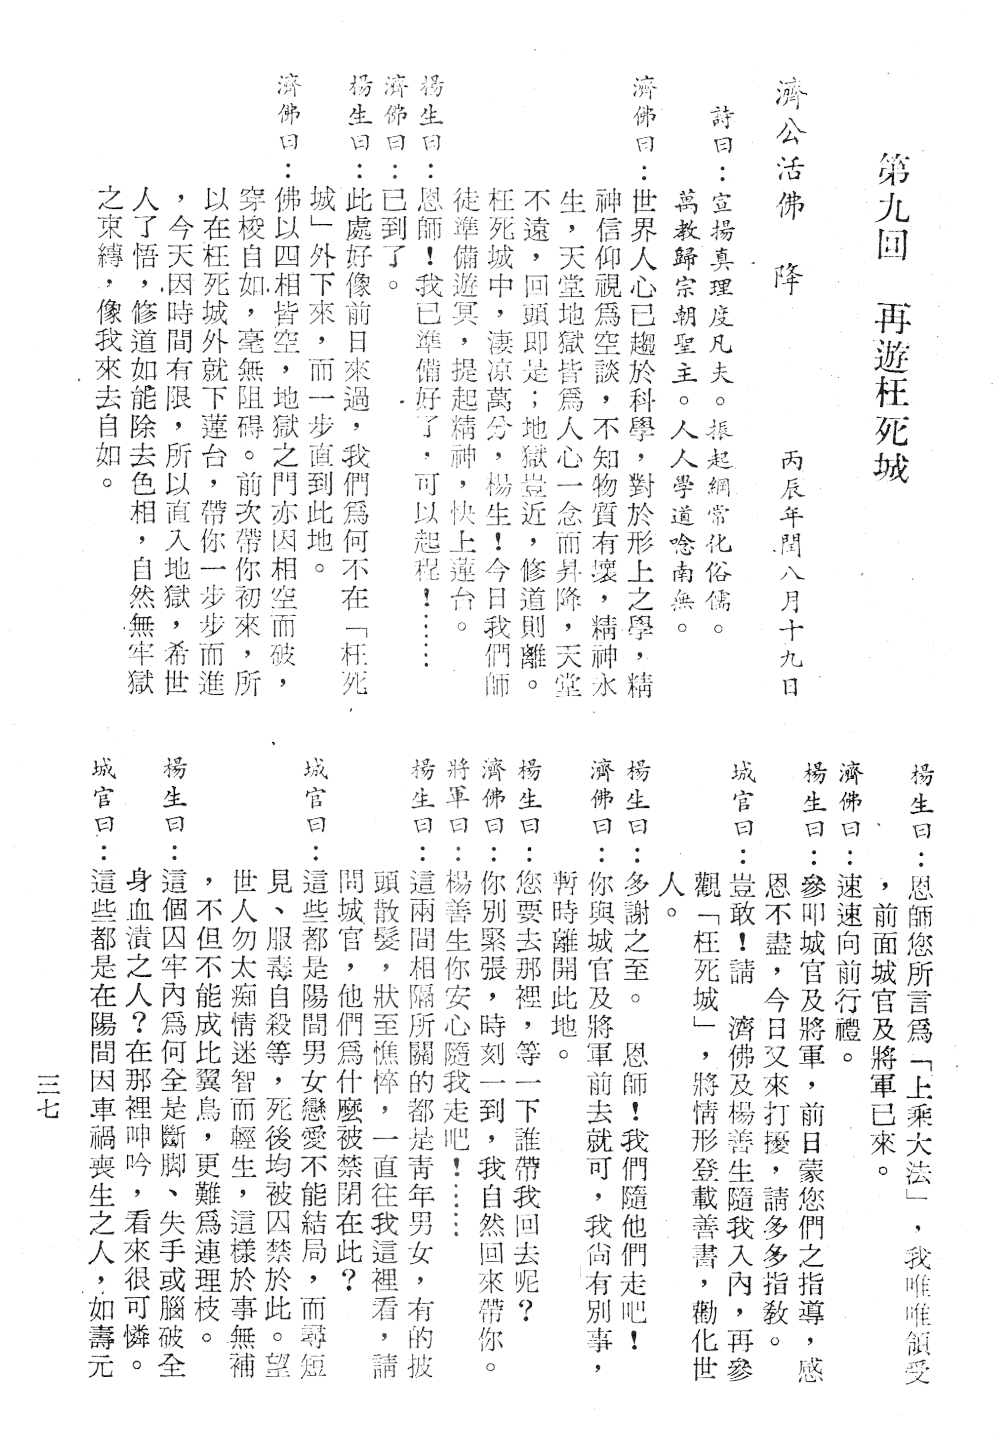 第九回　再遊枉死城
濟公活佛　降　　　丙辰年閏八月十九日
詩曰：宣揚真理度凡夫。振起綱常化俗儒。
萬教歸宗朝聖主。人人學道唸南無。
濟佛曰：世界人心已趨於科學，對於形上之學，精
神信仰視爲空談，不知物質有壞，精神永
生，天堂地獄皆爲人心一念而昇降，天堂
不遠，回頭即是；地獄豈近，修道則離。
枉死城中，淒凉萬分，楊生！今日我們師
徒準備遊冥，提起精神，快上蓮台。
楊生曰：恩師！我已準備好了，可以起程！……
濟佛曰：已到了。
楊生曰：此處好像前日來過，我們爲何不在「枉死
城」外下來，而一步直到此地。
濟佛曰：佛以四相皆空，地獄之門亦因相空而破，
穿梭自如，毫無阻碍。前次帶你初來，所
以在枉死城外就下蓮台，帶你一步步而進
，今天因時間有限，所以直入地獄，希世
人了悟，修道如能除去色相，自然無牢獄
之束縛，像我來去自如。
楊生曰：恩師您所言爲「上乘大法」，我唯唯領受
，前面城官及將軍已來。
濟佛曰：速速向前行禮。
楊生曰：參叩城官及將軍，前日蒙您們之指導，感
恩不盡，今日又來打擾，請多多指教。
城官曰：豈敢！請　濟佛及楊善生隨我入內，再參
觀「枉死城」，將情形登載善書，勸化世
人。
楊生曰：多謝之至。　恩師！我們隨他們走吧！
濟佛曰：你與城官及將軍前去就可，我尙有別事，
暫時離開此地。
楊生曰：您要去那裡，等一下誰帶我回去呢？
濟佛曰：你別緊張，時刻一到，我自然回來帶你。
將軍曰：楊善生你安心隨我走吧！……
楊生曰：這兩間相隔所關的都是靑年男女，有的披
頭散髮，狀至憔悴，一直往我這裡看，請
問城官，他們爲什麼被禁閉在此？
城官曰：這些都是陽間男女戀愛不能結局，而尋短
見、服毒自殺等，死後均被囚禁於此。望
世人勿太痴情迷智而輕生，這樣於事無補
，不但不能成比翼鳥，更難爲連理枝。
楊生曰：這個囚牢內爲何全是斷脚、失手或腦破全
身血漬之人？在那裡呻吟，看來很可憐。
城官曰：這些都是在陽間因車禍喪生之人，如壽元
三七